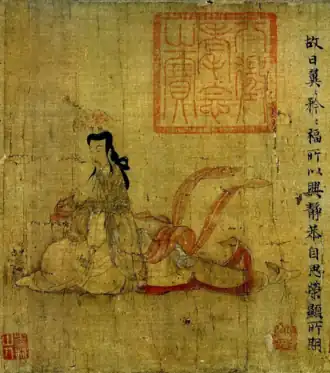 故曰翼〻矜〻福所以興靜恭自思榮顯所期